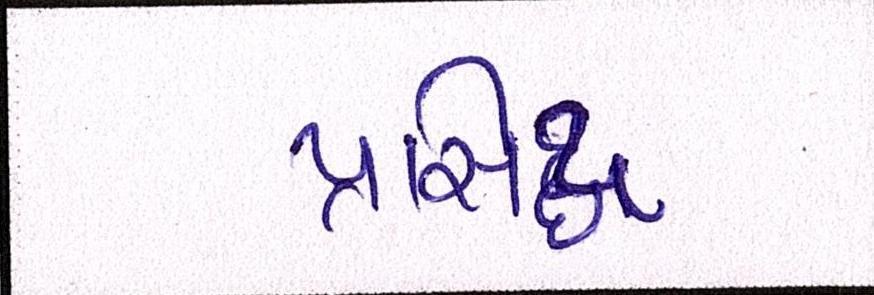 પ્રસિદ્ધ